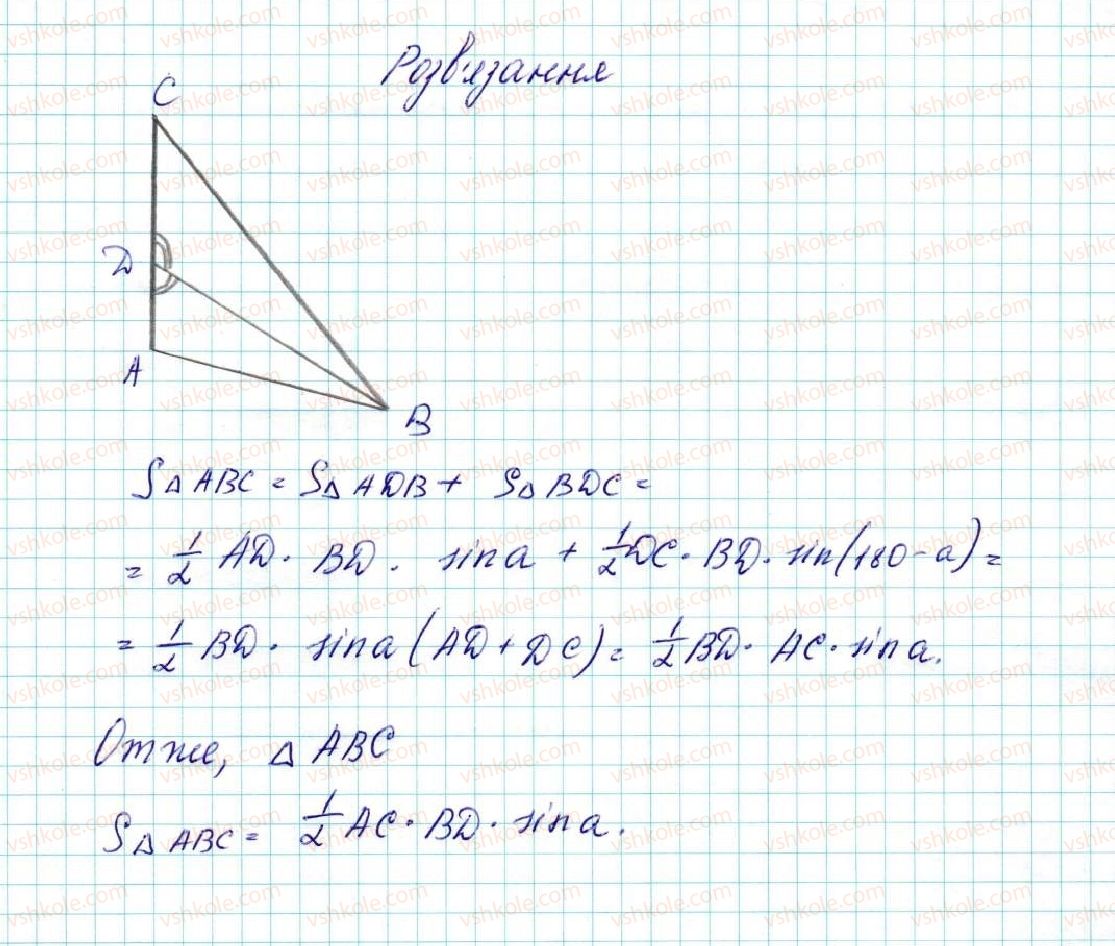 Розв'язання
C
D
A
B
S△ABC = S△ADB + S△BDC =
= 1/2 AD · BD · sin a + 1/2 DC · BD · sin(180 - a) =
= 1/2 BD · sin a (AD + DC) = 1/2 BD · AC · sin a.
Отже, △ABC
S△ABC = 1/2 AC · BD · sin a.
vshkole.com